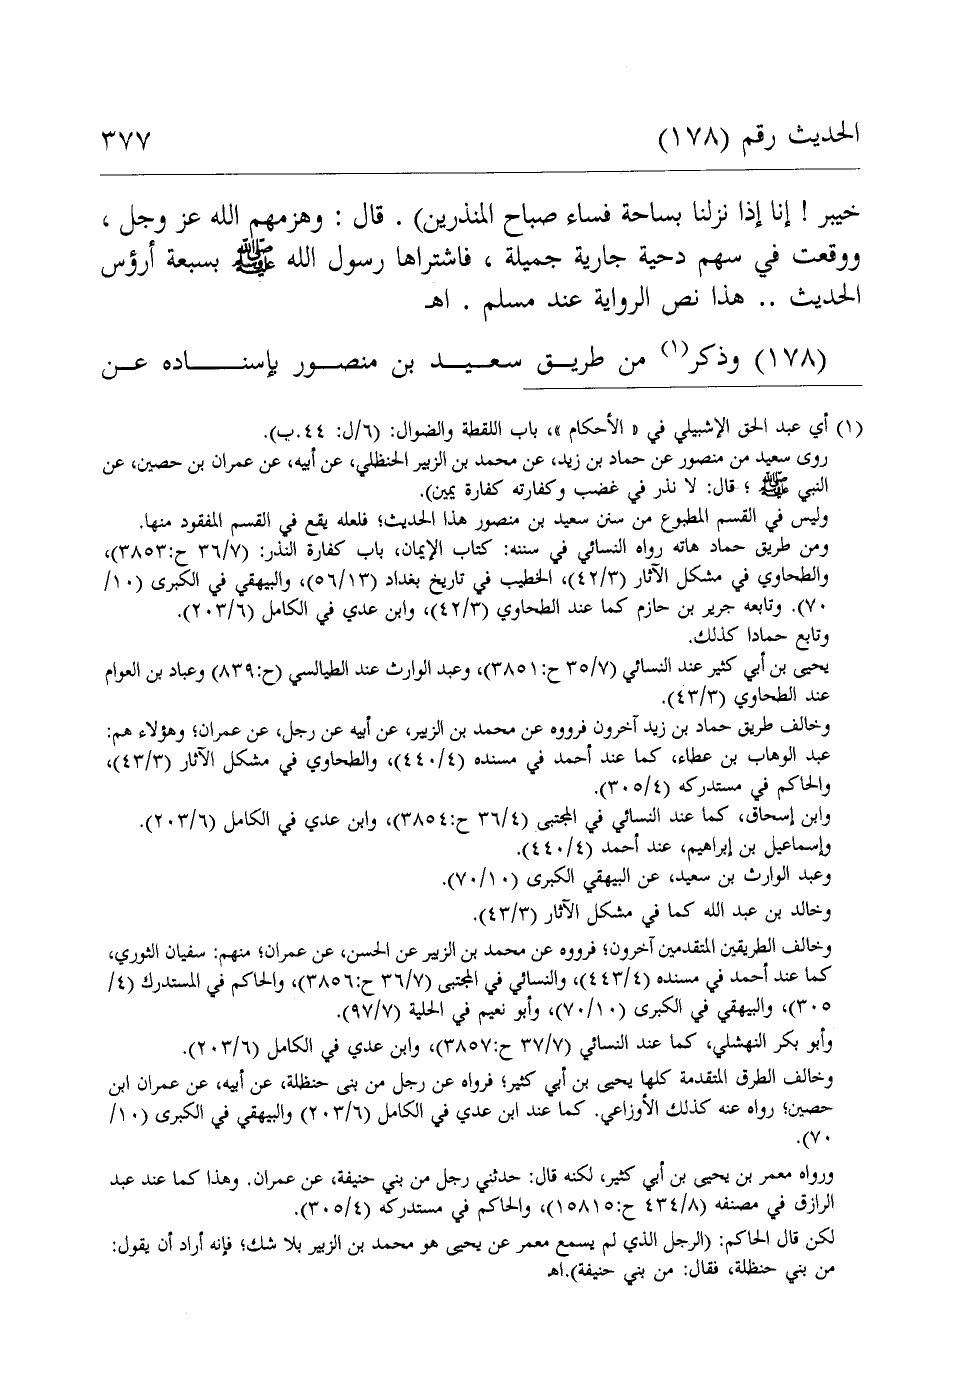 الحديث رقم (١٧٨) ٣٧٧
خيبر ! إنا إذا نزلنا بساحة فساء صباح المنذرين) . قال : وهزمهم الله عز وجل ،
ووقعت في سهم دحية جارية جميلة ، فاشتراها رسول الله ﷺ بسبعة أرؤس
الحديث .. هذا نص الرواية عند مسلم . اهـ
(١٧٨) وذكر(١) من طريق سعيد بن منصور بإسناده عن
(١) أي عبد الحق الإشبيلي في « الأحكام »، باب اللقطة والضوال: (٦/ل: ٤٤.ب).
روى سعيد من منصور عن حماد بن زيد، عن محمد بن الزبير الحنظلي، عن أبيه، عن عمران بن حصين، عن
النبي ﷺ ؛ قال: لا نذر في غضب وكفارته كفارة يمين).
وليس في القسم المطبوع من سنن سعيد بن منصور هذا الحديث؛ فلعله يقع في القسم المفقود منها.
ومن طريق حماد هاته رواه النسائي في سننه: كتاب الإيمان، باب كفارة النذر: (٣٦/٧ ح:٣٨٥٣)،
والطحاوي في مشكل الآثار (٤٢/٣)، الخطيب في تاريخ بغداد (٥٦/١٣)، والبيهقي في الكبرى (١٠/
٧٠). وتابعه جرير بن حازم كما عند الطحاوي (٤٢/٣)، وابن عدي في الكامل (٢٠٣/٦).
وتابع حمادا كذلك.
يحيى بن أبي كثير عند النسائي (٣٥/٧ ح:٣٨٥١)، وعبد الوارث عند الطيالسي (ح:٨٣٩) وعباد بن العوام
عند الطحاوي (٤٣/٣).
وخالف طريق حماد بن زيد آخرون فرووه عن محمد بن الزبير، عن أبيه عن رجل، عن عمران؛ وهؤلاء هم:
عبد الوهاب بن عطاء، كما عند أحمد في مسنده (٤٤٠/٤)، والطحاوي في مشكل الآثار (٤٣/٣)،
والحاكم في مستدركه (٣٠٥/٤).
وابن إسحاق، كما عند النسائي في المجتبى (٣٦/٤ ح:٣٨٥٤)، وابن عدي في الكامل (٢٠٣/٦).
وإسماعيل بن إبراهيم، عند أحمد (٤٤٠/٤).
وعبد الوارث بن سعيد، عن البيهقي الكبرى (٧٠/١٠).
وخالد بن عبد الله كما في مشكل الآثار (٤٣/٣).
وخالف الطريقين المتقدمين آخرون؛ فرووه عن محمد بن الزبير عن الحسن، عن عمران؛ منهم: سفيان الثوري،
كما عند أحمد في مسنده (٤٤٣/٤)، والنسائي في المجتبى (٣٦/٧ ح:٣٨٥٦)، والحاكم في المستدرك (٤/
٣٠٥)، والبيهقي في الكبرى (٧٠/١٠)، وأبو نعيم في الحلية (٩٧/٧).
وأبو بكر النهشلي، كما عند النسائي (٣٧/٧ ح:٣٨٥٧)، وابن عدي في الكامل (٢٠٣/٦).
وخالف الطرق المتقدمة كلها يحيى بن أبي كثير؛ فرواه عن رجل من بنى حنظلة، عن أبيه، عن عمران ابن
حصين؛ رواه عنه كذلك الأوزاعي. كما عند ابن عدي في الكامل (٢٠٣/٦) والبيهقي في الكبرى (١٠/
٧٠).
ورواه معمر بن يحيى بن أبي كثير، لكنه قال: حدثني رجل من بني حنيفة، عن عمران. وهذا كما عند عبد
الرازق في مصنفه (٤٣٤/٨ ح:١٥٨١٥)، والحاكم في مستدركه (٣٠٥/٤).
لكن قال الحاكم: (الرجل الذي لم يسمع معمر عن يحيى هو محمد بن الزبير بلا شك؛ فإنه أراد أن يقول:
من بني حنظلة، فقال: من بني حنيفة).اهـ